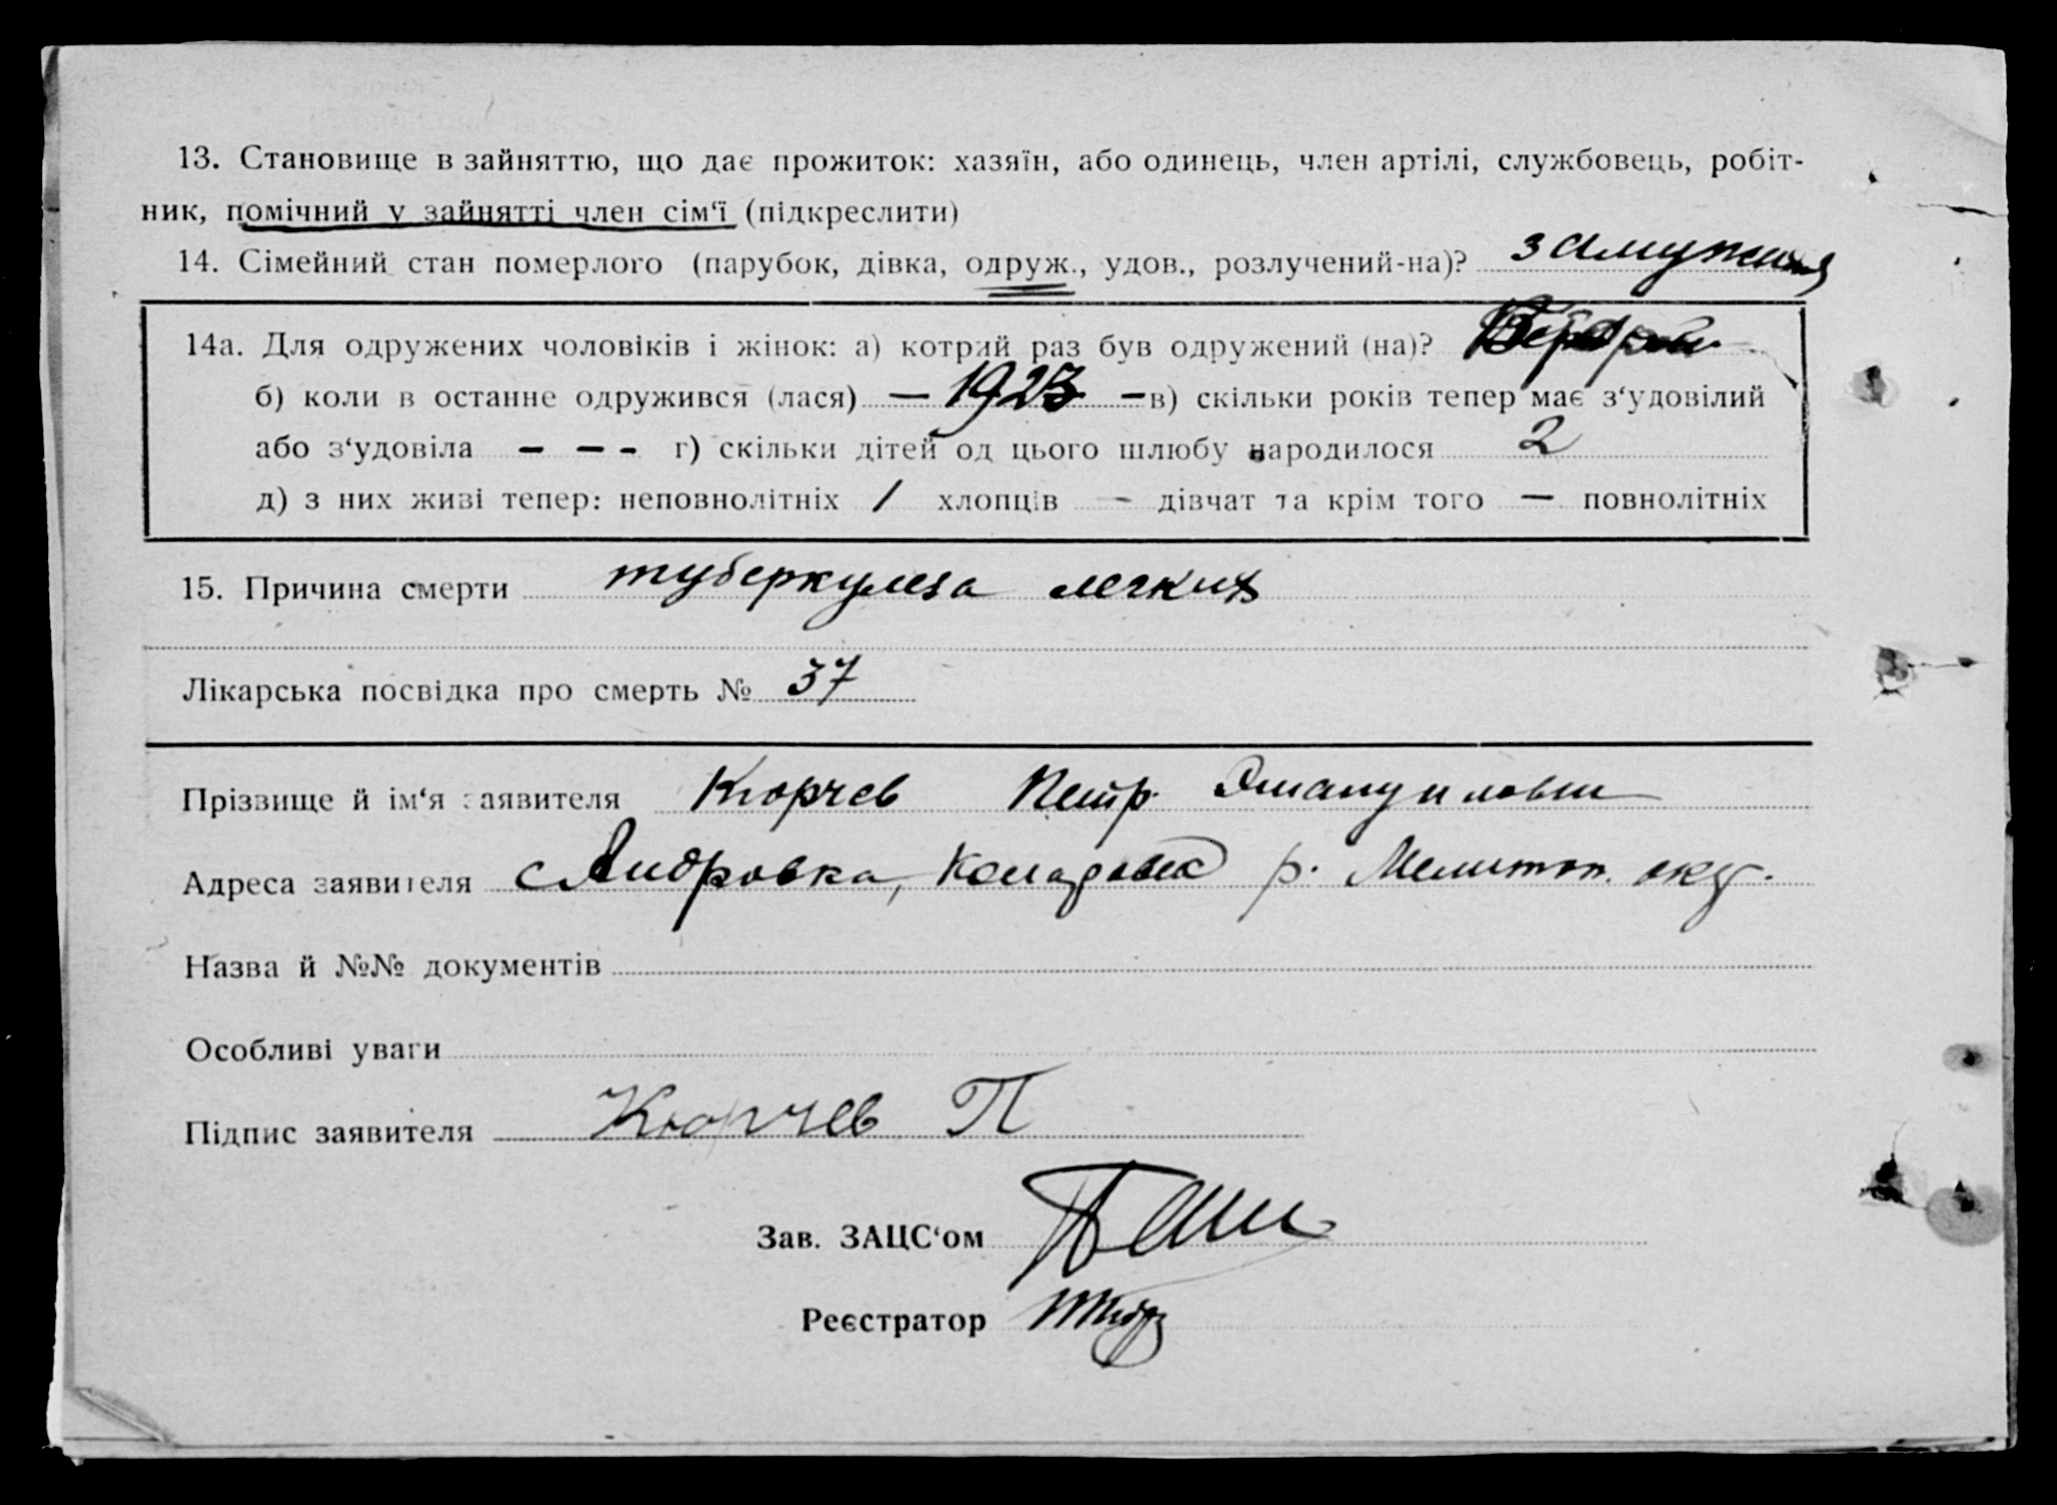 13. Становище в зайняттю, що дає прожиток: хазяїн, або одинець, член артілі, службовець, робіт-
ник, помічний у зайнятті член сім‘ї (підкреслити)
14. Сімейний стан померлого (парубок, дівка, одруж., удов., розлучений-на)? замужняя
14а. Для одружених чоловіків і жінок: а) котрий раз був одружений (на)?
б) коли в останне одружився (лася) — 1923 — в) скільки років тепер має з‘удовілий
або з‘удовіла – – – г) скільки дітей од цього шлюбу народилося 2
д) з них живі тепер: неповнолітніх / хлопців – дівчат та крім того — повнолітніх
15. Причина смерти туберкулеза легких
Лікарська посвідка про смерть № 37
Прізвище й ім‘я заявителя Кюрчев Петр
Адреса заявителя с Андровка, р. Мелитоп. окр.
Назва й №№ документів
Особливі уваги
Підпис заявителя Кюрчев П
Зав. ЗАЦС‘ом
Реєстратор